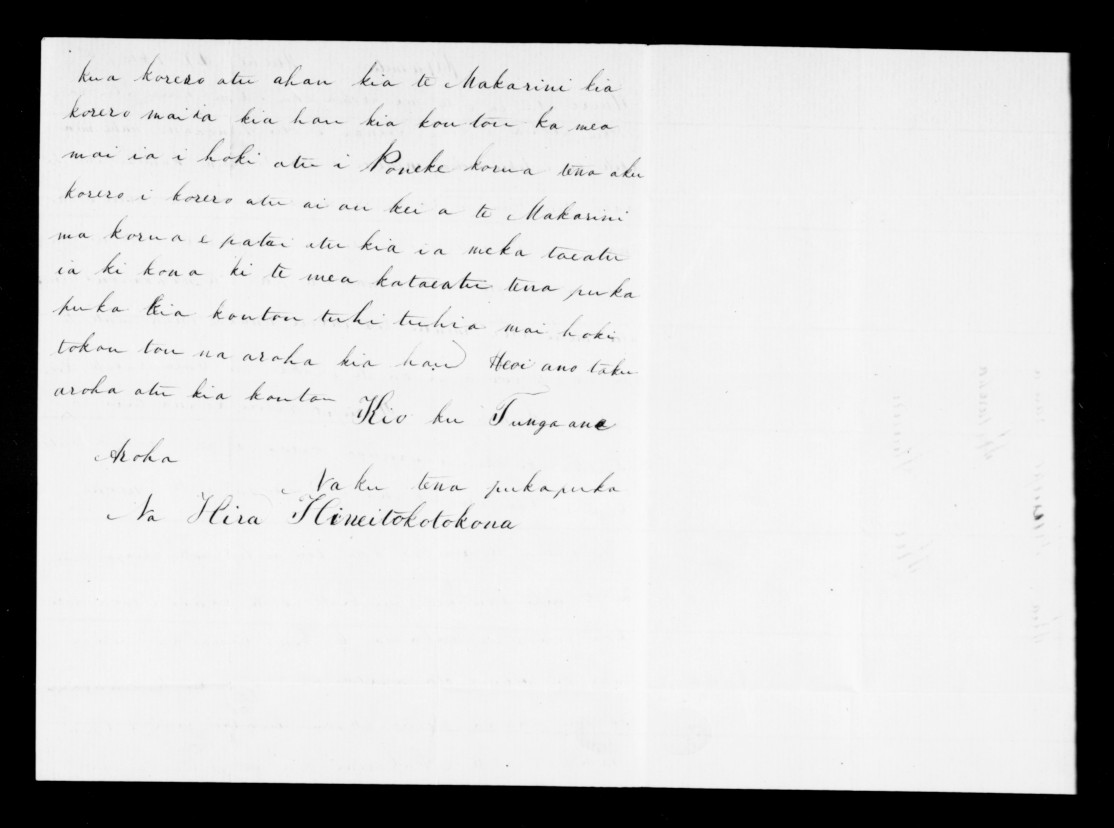 kua korero atu ahau kia te Makarini kia
korero mai ia kia hau kia koutou ka mea
mai ia i hoki atu i Poneke korua tena aku
korero i korero atu ai au kei a te Makarini
ma korua e patai atu kia ia meka taeatu
ia ki kona ki te mea kataeatu tena puka
puka kia koutou tuhi tuhia mai hoki
tokou tou na aroha kia hau Heoi ano taku
aroha atu kia koutou
Kio ku Tungaane
Aroha
Naku tena pukapuka
Na Hira Hineitokotokona